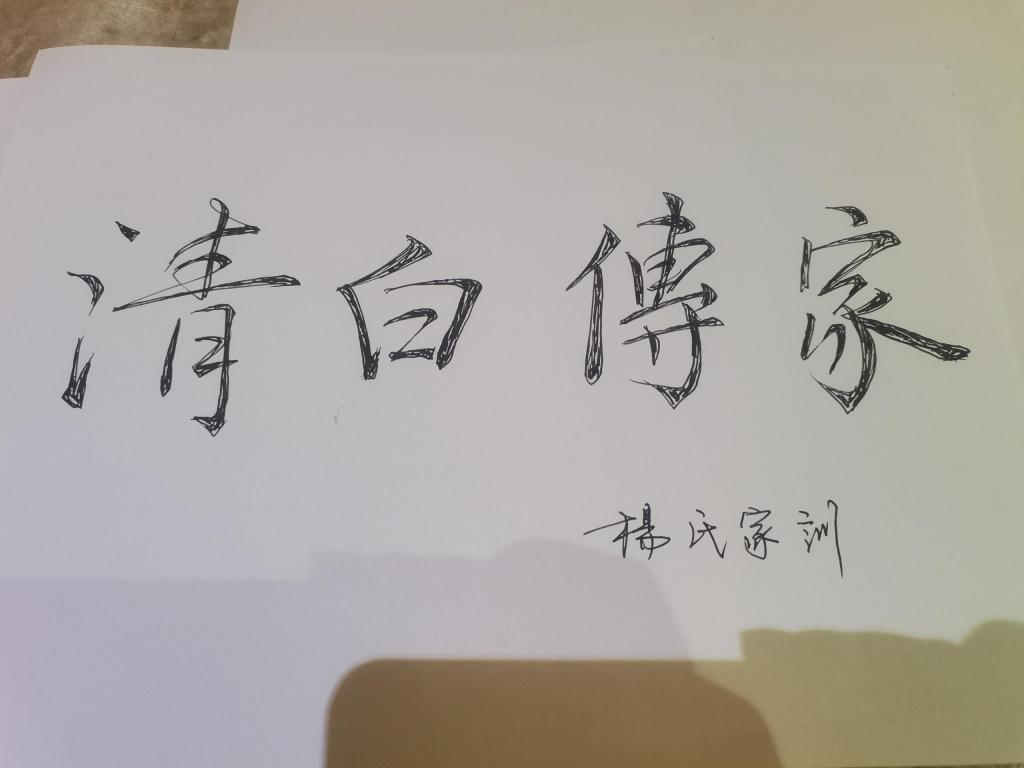 清白傳家
楊氏家訓